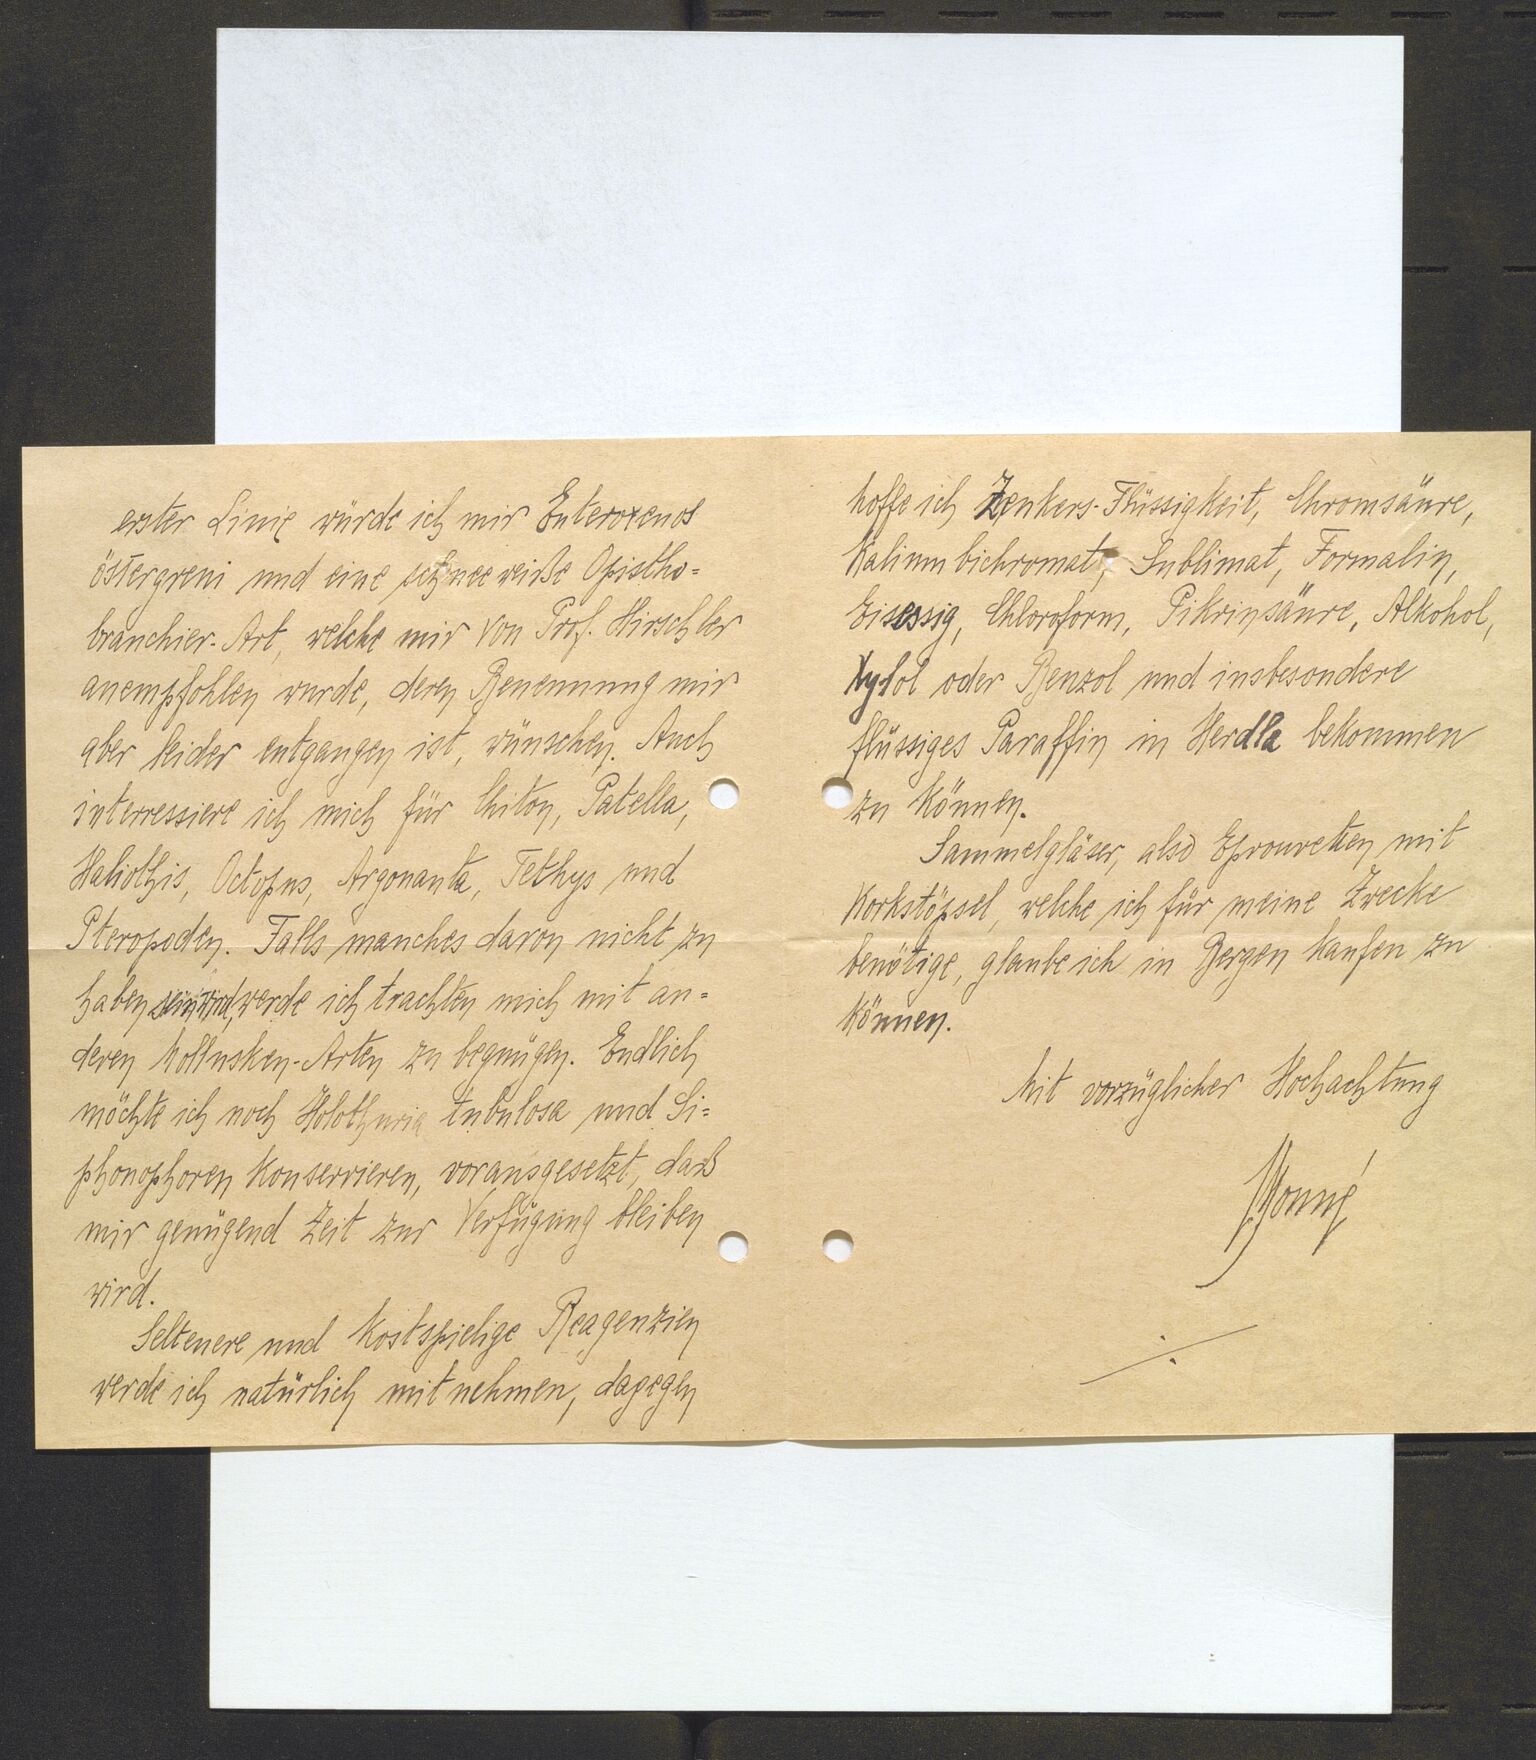 erster Linie würde ich mir Enteroxenos
östergreni und eine schneeweiße Opistho=
branchier-Art, welche mir von Prof. Hirschler
anempfohlen wurde, deren Benennung mir
aber leider entgangen ist, wünschen. Auch
interressiere ich mich für Chiton, Patella,
Haliothis, Octopus, Argonauta, Tethys und
Pteropoden. Falls manches davon nicht zu
haben sein wird, werde ich trachten mich mit an=
deren Mollusken-Arten zu begnügen. Endlich
möchte ich noch Holothuria tubulosa und Si=
phonophoren konservieren, vorausgesetzt, daß
mir genügend Zeit zur Verfügung bleiben
wird.
Seltenere und kostspielige Reagenzien
werde ich natürlich mitnehmen, dagegen
hoffe ich Zenkers-Flüssigkeit, Chromsäure,
Kalium bichromat, Sublimat, Formalin,
Eisessig, Chloroform, Pikrinsäure, Alkohol,
Xylol oder Benzol und insbesondere
flüssiges Paraffin in Herdla bekommen
zu können.
Sammelgläser, also Eprouvetten mit
Korkstöpsel, welche ich für meine Zwecke
benötige, glaube ich in Bergen kaufen zu
können.
Mit vorzüglicher Hochachtung
Monné